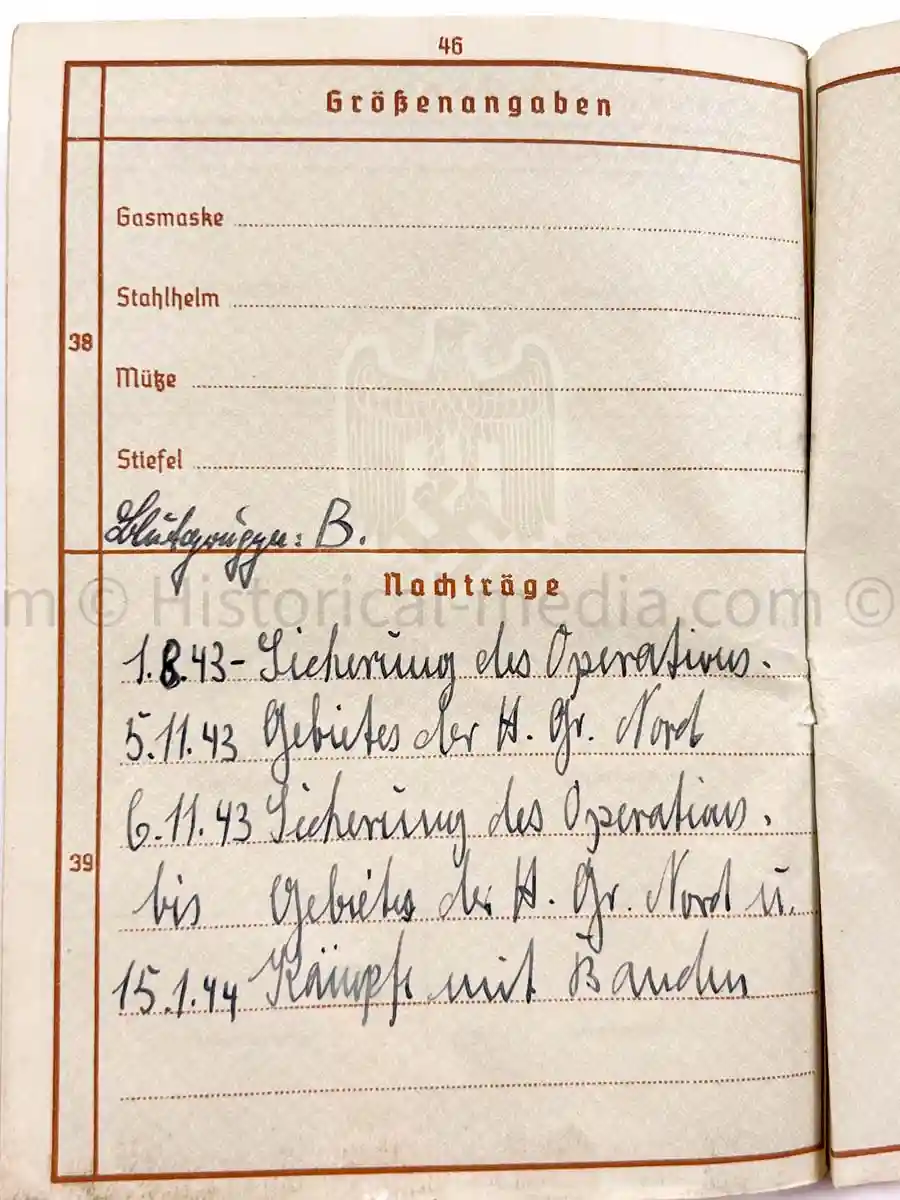 46
Größenangaben
38
Gasmaske
Stahlhelm
Mütze
Stiefel
Blutgruppe: B.
Nachträge
m © Historical-media.com ©
39
1.8.43- Sicherung des Operations-
5.11.43 Gebietes der H. Gr. Nord
6.11.43 Sicherung des Operations-
bis Gebietes der H. Gr. Nord u.
15.1.44 Kämpfe mit Banden